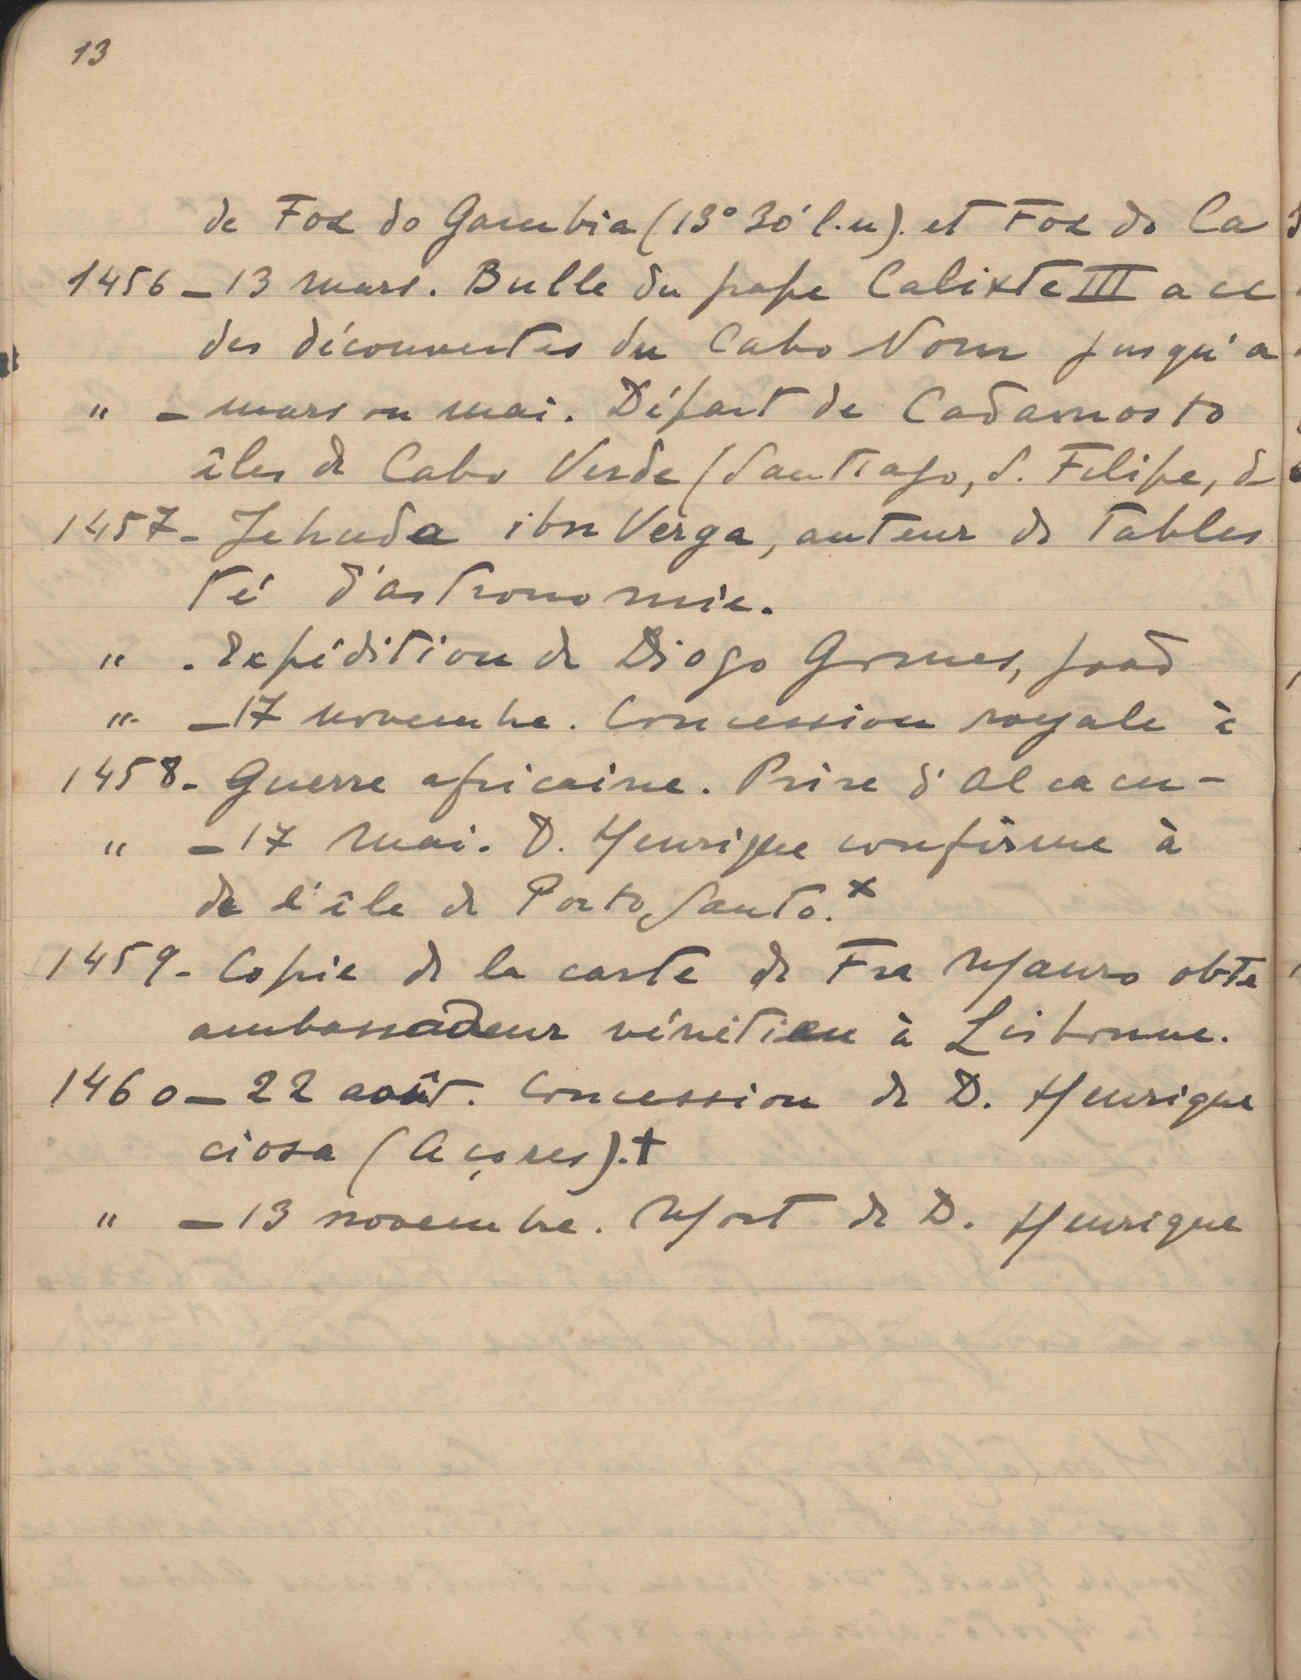 13
de Foz do Gambia (13° 30' l.n). et Foz do Ca
1456 – 13 mars. Bulle du pape Calixte III acc
des découvertes du Cabo Nom jusqu'a
" – mars ou mai. Départ de Cadamosto
îles de Cabo Verde (Santiago, S. Filipe, d
1457 - Jehuda ibn Verga, auteur de tables
té d'astronomie.
" . Expédition de Diogo Gomes,
" – 17 novembre. Concession royale à
1458 - Guerre africaine. Prise d'Alcacer-
" – 17 mai. D. Henrique confirme à
de l'île de Porto Santo. x
1459 - Copie de la carte de Fra Mauro obte
ambassadeur vénitien à Lisbonne.
1460 – 22 août. Concession de D. Henrique
ciosa (Açores).+
" – 13 novembre. Mort de D. Henrique